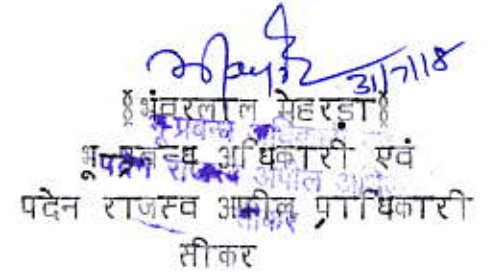 31/7/18
§भंवरलाल मेहरड़ा§
भू प्रबन्ध अधिकारी एवं
पदेन राजस्व अपील प्राधिकारी
सीकर